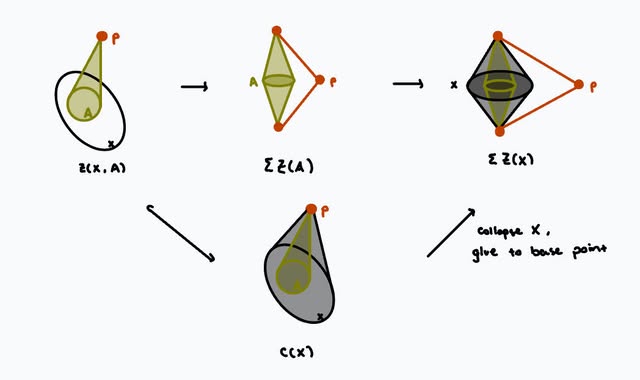 p
A
x
Z(X, A)
A
p
ΣZ(A)
x
p
ΣZ(X)
p
A
x
C(X)
collapse X,
glue to base point